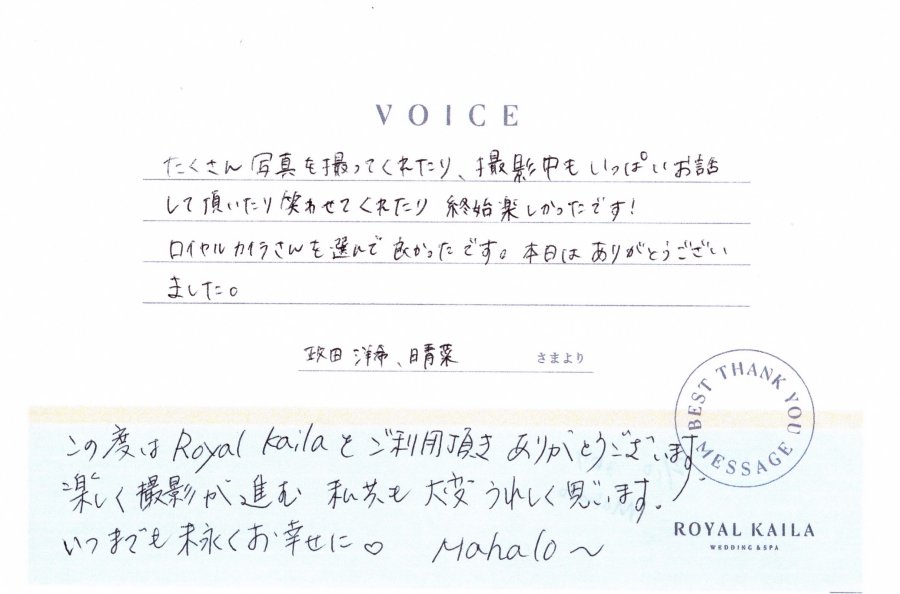 VOICE
たくさん写真を撮ってくれたり、撮影中もいっぱいお話
して頂いたり笑わせてくれたり 終始楽しかったです!
ロイヤルカイラさんを選んで良かったです。本日はありがとうござい
ました。
政田 洋希、晴菜 さまより
BEST THANK YOU MESSAGE
この度はRoyal Kailaをご利用頂きありがとうございます
楽しく撮影が進む 私共も 大変うれしく思います.
いつまでも末永くお幸せに♡ Mahalo〜
ROYAL KAILA
WEDDING & SPA